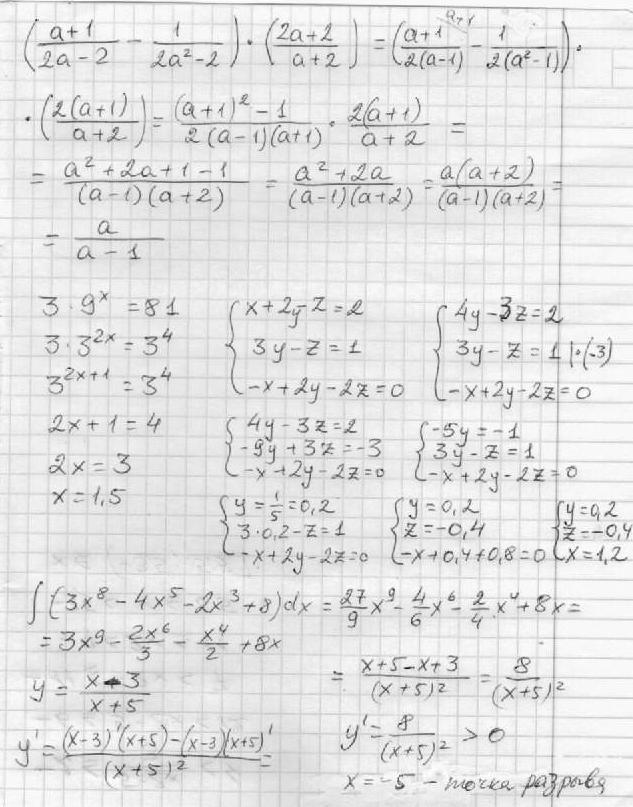 ((a+1)/(2a-2) - 1/(2a²-2)) · ((2a+2)/(a+2)) = ((a+1)/(2(a-1)) - 1/(2(a²-1))) · a+1
· (2(a+1)/(a+2)) = ((a+1)²-1)/(2(a-1)(a+1)) · 2(a+1)/(a+2) =
= (a²+2a+1-1)/((a-1)(a+2)) = (a²+2a)/((a-1)(a+2)) = a(a+2)/((a-1)(a+2)) =
= a/(a-1)
3·9ˣ = 81
3·3²ˣ = 3⁴
3²ˣ⁺¹ = 3⁴
2x+1 = 4
2x = 3
x = 1,5
{ x+2y-z=2
3y-z=1
-x+2y-2z=0
{ 4y-3z=2
3y-z=1 |·(-3)
-x+2y-2z=0
{ 4y-3z=2
-9y+3z=-3
-x+2y-2z=0
{ -5y=-1
3y-z=1
-x+2y-2z=0
{ y=1/5=0,2
3·0,2-z=1
-x+2y-2z=0
{ y=0,2
z=-0,4
-x+0,4+0,8=0
{ y=0,2
z=-0,4
x=1,2
∫(3x⁸-4x⁵-2x³+8)dx = 27/9 x⁹ - 4/6 x⁶ - 2/4 x⁴ + 8x =
= 3x⁹ - 2x⁶/3 - x⁴/2 + 8x
y = (x-3)/(x+5)
y' = ((x-3)'(x+5)-(x-3)(x+5)')/(x+5)² =
= (x+5-x+3)/(x+5)² = 8/(x+5)²
y' = 8/(x+5)² > 0
x=-5 - точка разрыва